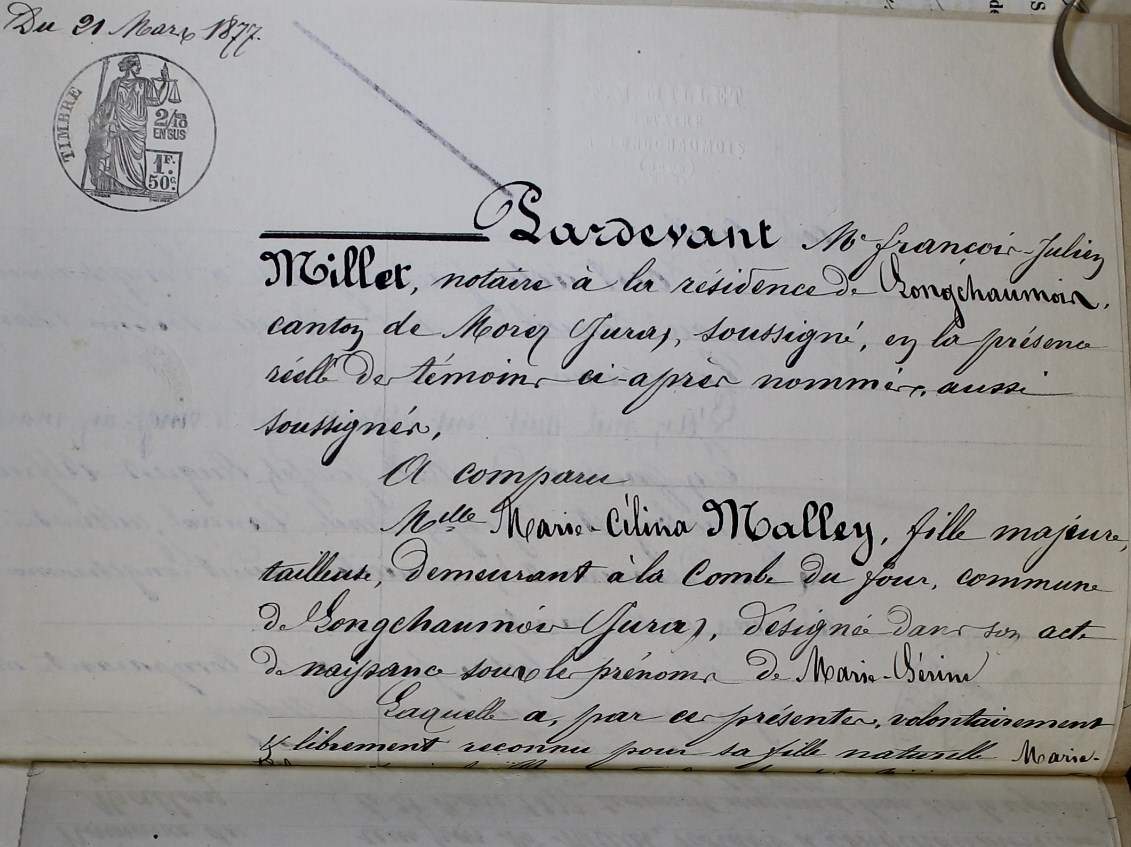 Du 21 Mars 1877.
TIMBRE
2/10
EN SUS
1F.
50c.
Pardevant Me françois-Julien
Millet, notaire à la résidence de Longchaumois,
canton de Morez (Jura), soussigné, en la présence
réelle des témoins ci-après nommés, aussi
soussignés,
A comparu
Melle Marie-Célina Malley, fille majeure,
tailleuse, demeurant à la Combe du four, commune
de Longchaumois (Jura), désignée dans son acte
de naissance sous les prénoms de Marie-Sérine
Laquelle a, par ces présentes, volontairement
& librement reconnu pour sa fille naturelle Marie-